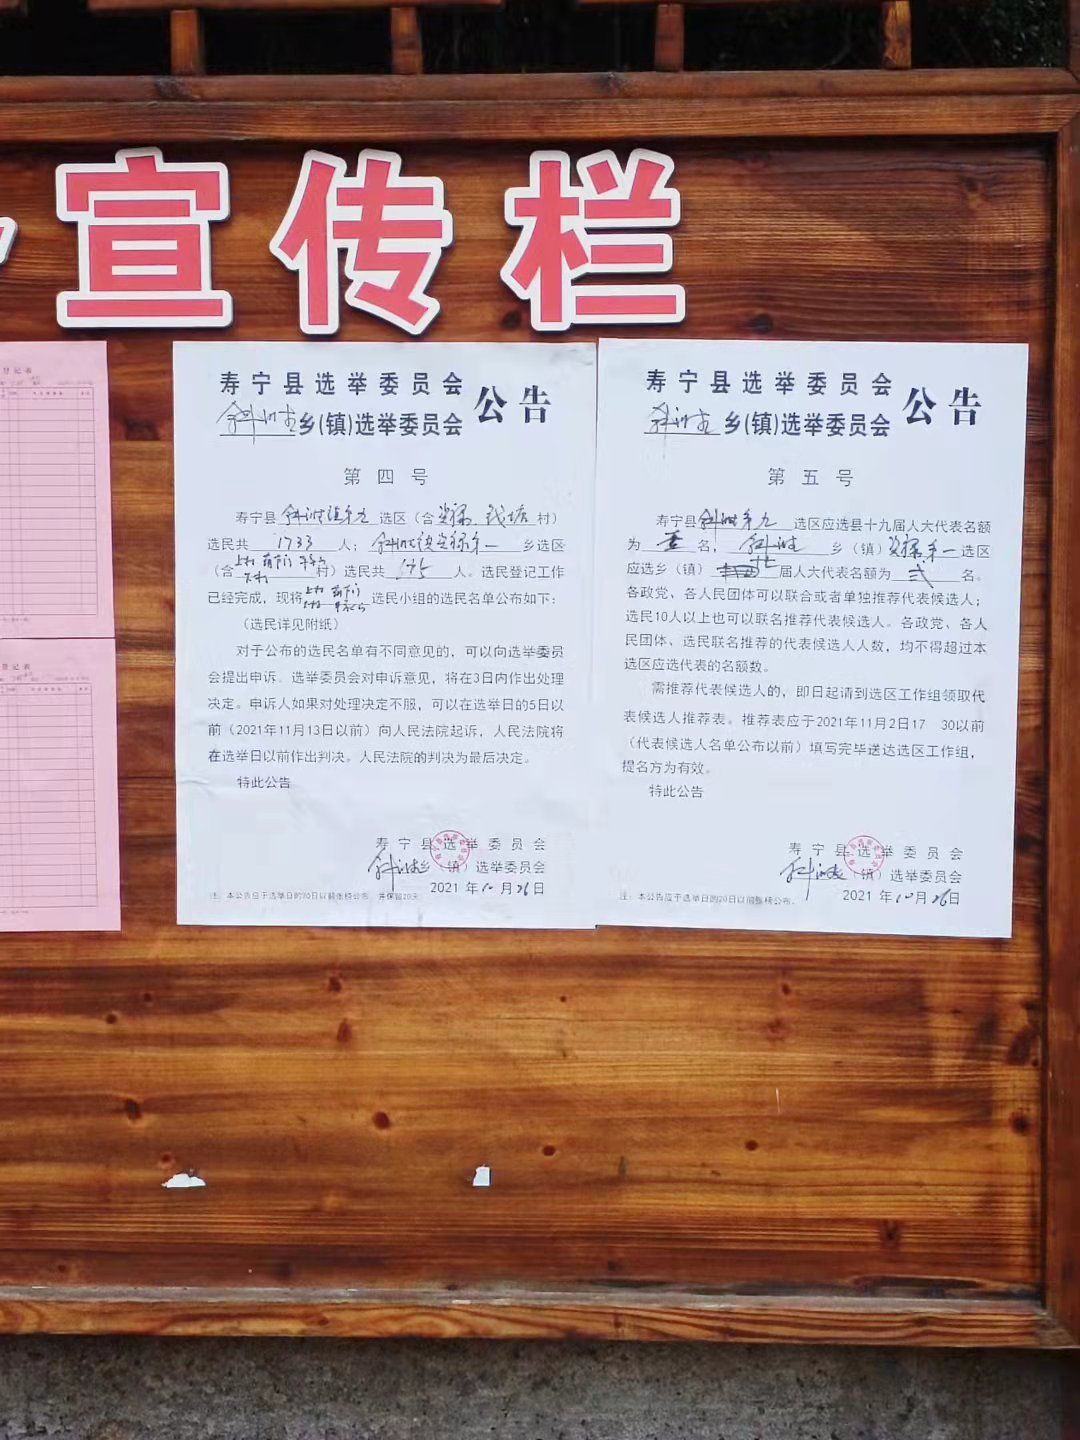 宣传栏
登记表
登记表
寿宁县选举委员会
斜滩镇乡(镇)选举委员会
公告
第四号
寿宁县斜滩镇第九选区(含 村)
选民共1733人; 斜滩镇 第一乡选区
(含 村)选民共 人。选民登记工作
已经完成,现将 选民小组的选民名单公布如下:
(选民详见附纸)
对于公布的选民名单有不同意见的,可以向选举委员
会提出申诉。选举委员会对申诉意见,将在3日内作出处理
决定。申诉人如果对处理决定不服,可以在选举日的5日以
前(2021年11月13日以前)向人民法院起诉,人民法院将
在选举日以前作出判决。人民法院的判决为最后决定。
特此公告
寿宁县选举委员会
斜滩镇乡(镇)选举委员会
2021年10月26日
注:本公告应于选举日的20日以前张榜公布,并保留20天
寿宁县选举委员会
斜滩镇乡(镇)选举委员会
公告
第五号
寿宁县斜滩第九选区应选县十九届人大代表名额
为壹名, 斜滩镇乡(镇) 第一选区
应选乡(镇) 届人大代表名额为贰名。
各政党、各人民团体可以联合或者单独推荐代表候选人;
选民10人以上也可以联名推荐代表候选人。各政党、各人
民团体、选民联名推荐的代表候选人人数,均不得超过本
选区应选代表的名额数。
需推荐代表候选人的,即日起请到选区工作组领取代
表候选人推荐表。推荐表应于2021年11月2日17 30以前
(代表候选人名单公布以前)填写完毕送达选区工作组,
提名方为有效。
特此公告
寿宁县选举委员会
斜滩镇(镇)选举委员会
2021年10月26日
注:本公告应于选举日的20日以前张榜公布。